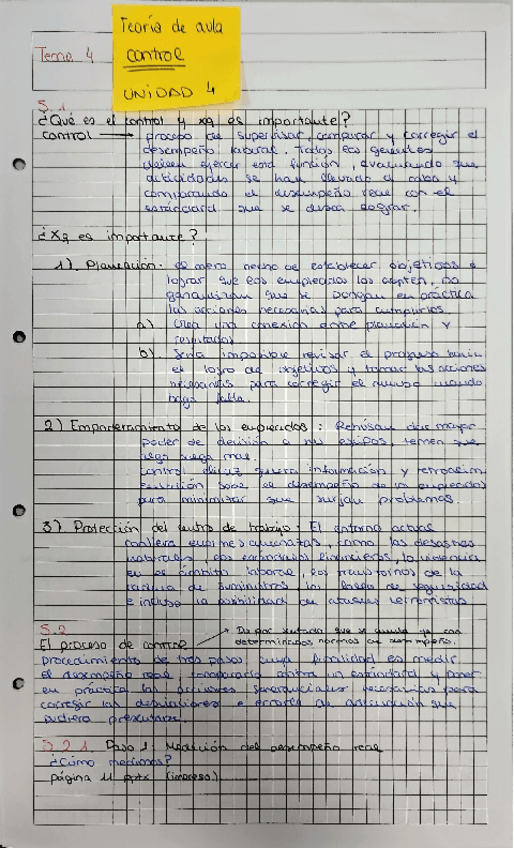 Teoría de aula
control
UNIDAD 4
Tema 4
5.1
¿Qué es el control y xq es importante?
control → proceso de supervisar, comparar y corregir el
desempeño laboral. Todos los gerentes
deben ejercer esta función, evaluando que
actividades se han llevado a cabo y
comparando el desempeño real con el
estándard que se desea lograr.
¿Xq es importante?
1). Planeación: el mero hecho de establecer objetivos o
lograr que los empleados los acepten, no
garantizan que se pongan en práctica
las acciones necesarias para cumplirlos.
a) Crea una conexión entre planeación y
resultados
b) Sería imposible revisar el progreso hacia
el logro de objetivos y tomar las acciones
necesarias para corregir el rumbo cuando
haga falta.
2) Empoderamiento de los empleados: Rehúsan dar mayor
poder de decisión a sus equipos, temen que
algo salga mal.
Control eficaz genera información y retroalim
sobre el desempeño de los empleados
para minimizar que surjan problemas.
3) Protección del centro de trabajo: El entorno actual
conlleva enormes amenazas, como los desastres
naturales, los escándalos financieros, la violencia
en el ámbito laboral, los transtornos de la
cadena de suministros, la de seguridad
e incluso la posibilidad de ataques terroristas
5.2
El proceso de control → Da por sentado que se cuenta ya con
determinadas normas de desempeño.
Procedimiento de tres pasos, cuya finalidad es medir
el desempeño real, compararlo contra un estándard y poner
en práctica las acciones gerenciales necesarias para
corregir las desviaciones o errores de adecuación que
pudiera presentarse.
5.2.1. Paso 1: Medición del desempeño real
¿Cómo medimos?
página 11 pptx (impreso)